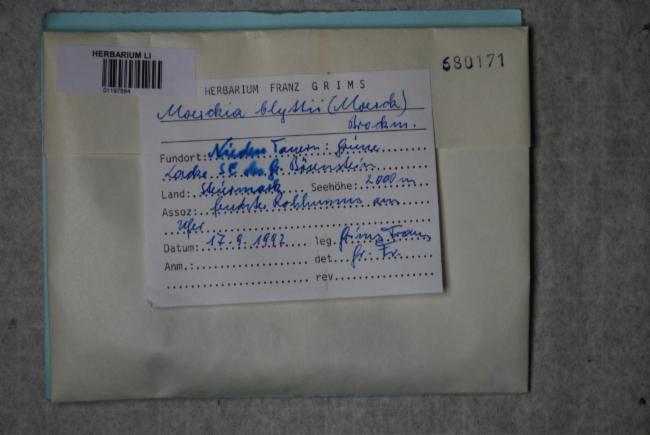 HERBARIUM LI
01197894
680171
HERBARIUM FRANZ GRIMS
Moerckia blyttii (Moerck)
Brockm.
Fundort: Niedere Tauern: Grüne
Lacke SE des Gr. Bösenstein
Land: Steiermark Seehöhe: 2000 m
Assoz: feuchter Rohhumus am
Ufer
Datum: 17.9.1992 leg. Grims Franz
Anm.: det. Gr. Fr.
rev.